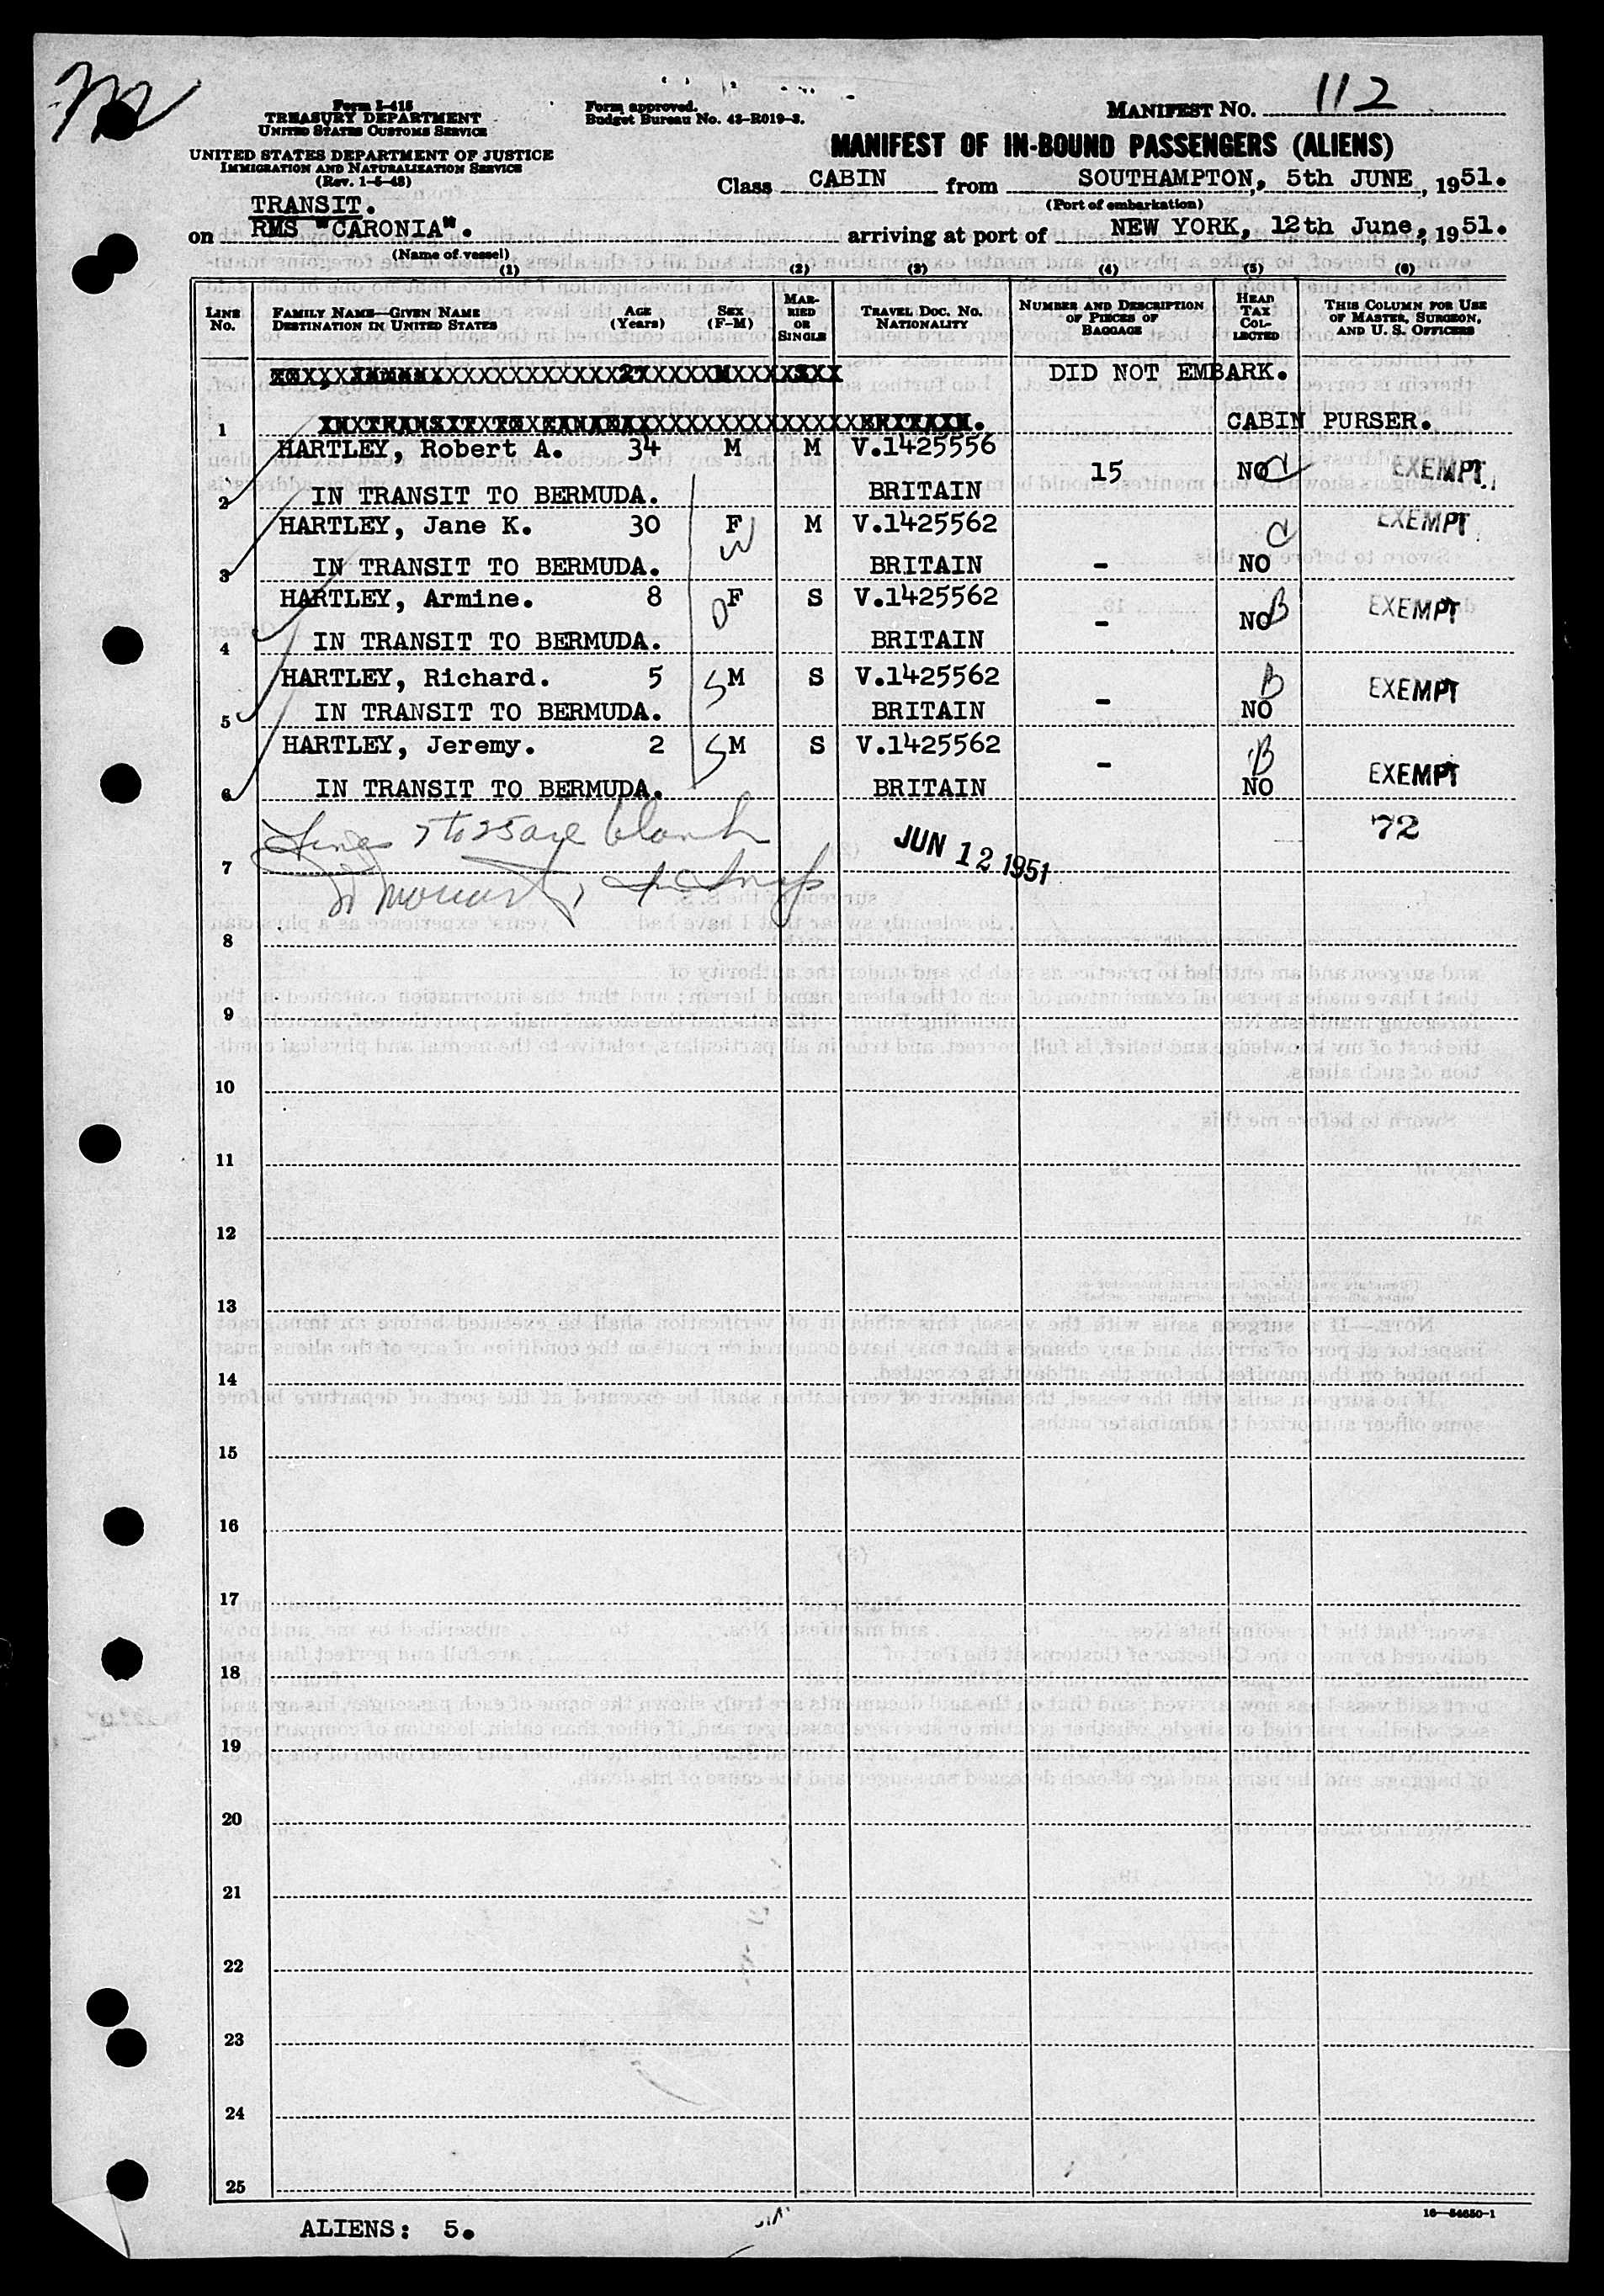 112
Form I-415
TREASURY DEPARTMENT
UNITED STATES CUSTOMS SERVICE
UNITED STATES DEPARTMENT OF JUSTICE
IMMIGRATION AND NATURALIZATION SERVICE
(Rev. 1-5-48)
Form approved.
Budget Bureau No. 43-R019-3.
MANIFEST NO. 112
MANIFEST OF IN-BOUND PASSENGERS (ALIENS)
Class CABIN from SOUTHAMPTON, 5th JUNE, 1951.
(Port of embarkation)
TRANSIT.
on RMS "CARONIA". arriving at port of NEW YORK, 12th June, 1951.
(Name of vessel)
(1) (2) (3) (4) (5) (6)
LINE No. FAMILY NAME—GIVEN NAME DESTINATION IN UNITED STATES AGE (Years) SEX (F-M) MARRIED OR SINGLE TRAVEL DOC. NO. NATIONALITY NUMBER AND DESCRIPTION OF PIECES OF BAGGAGE HEAD TAX COLLECTED THIS COLUMN FOR USE OF MASTER, SURGEON, AND U. S. OFFICERS
DID NOT EMBARK.
1 CABIN PURSER.
HARTLEY, Robert A. 34 M M V.1425556
15 NO C EXEMPT
2 IN TRANSIT TO BERMUDA. BRITAIN
HARTLEY, Jane K. 30 F M V.1425562 C EXEMPT
W
3 IN TRANSIT TO BERMUDA. BRITAIN - NO
HARTLEY, Armine. 8 D F S V.1425562 - NO B EXEMPT
4 IN TRANSIT TO BERMUDA. BRITAIN
HARTLEY, Richard. 5 S M S V.1425562 - B EXEMPT
5 IN TRANSIT TO BERMUDA. BRITAIN NO
HARTLEY, Jeremy. 2 S M S V.1425562 - B EXEMPT
6 IN TRANSIT TO BERMUDA. BRITAIN NO
Lines 7 to 25 are blank 72
JUN 12 1951
7
8
9
10
11
12
13
14
15
16
17
18
19
20
21
22
23
24
25
16—54650-1
ALIENS: 5.